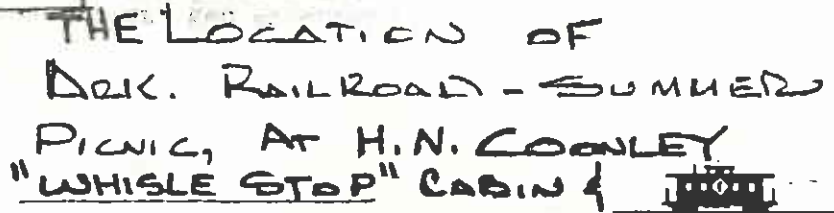 THE LOCATION OF
ARK. RAILROAD - SUMMER
PICNIC, AT H.N. COONLEY
"WHISLE STOP" CABIN &